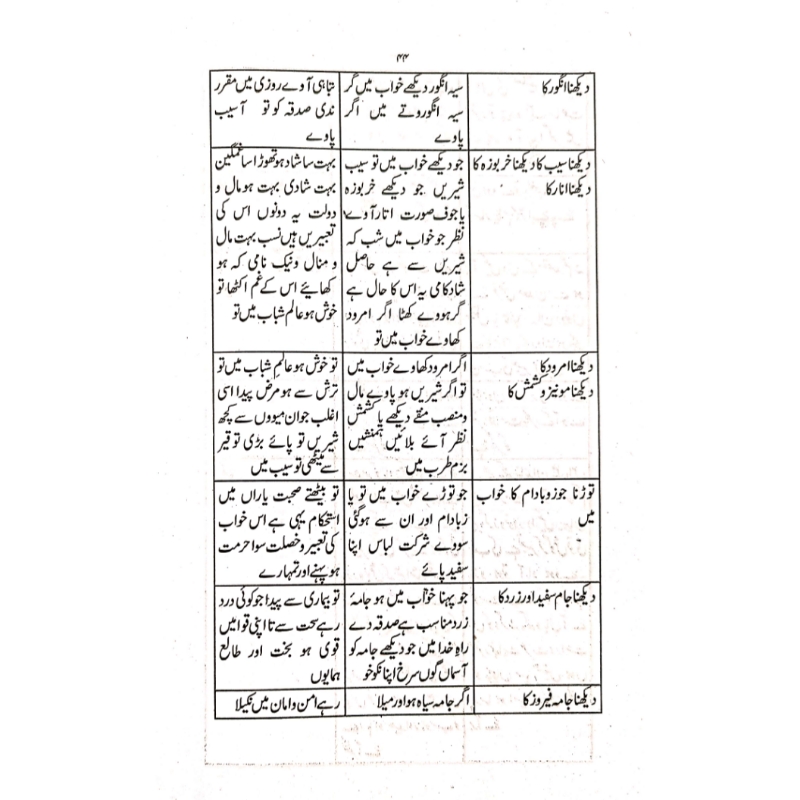 ۴۴
دیکھنا انگور کا
سیہ انگور دیکھے خواب میں گر
سیہ انگوروتے میں اگر
پاوے
تباہی آوے روزی میں مقرر
ندی صدقہ کو تو آسیب
پاوے
دیکھنا سیب کا دیکھنا خربوزہ کا
دیکھنا انار کا
جو دیکھے خواب میں تو سیب
شیریں جو دیکھے خربوزہ
یا جوف صورت انار آوے
نظر جو خواب میں شب کہ
شیریں سے ہے حاصل
شادکامی یہ اس کا حال ہے
گر ہووے کھٹا اگر امرود
کھاوے خواب میں تو
بہت سا شاد ہو تھوڑا سا غمگین
بہت شادی بہت ہو مال و
دولت یہ دونوں اس کی
تعبیریں ہیں نسب بہت مال
و منال و نیک نامی کہ ہو
کھائیے اس کے غم اکٹھا تو
خوش ہو عالم شباب میں تو
دیکھنا امرود کا
دیکھنا مونیز و کشمش کا
اگر امرود کھاوے خواب میں
تو اگر شیریں ہو پاوے مال
و منصب منقے دیکھے یا کشمش
نظر آئے بلائیں ہمنشیں
بزم طرب میں
تو خوش ہو عالم شباب میں تو
ترش سے ہو مرض پیدا اسی
اغلب جوان میووں سے کچھ
شیریں تو پائے بڑی توقیر
سے میٹھی تو سیب میں
توڑنا جوز و بادام کا خواب
میں
جو توڑے خواب میں تو یا
زبادام اور ان سے ہو گئی
سووے شرکت لباس اپنا
سفید پائے
تو بیٹھتے صحبت یاراں میں
استحکام یہی ہے اس خواب
کی تعبیر و خصلت سوا حرمت
ہو پہنے اور تمہارے
دیکھنا جام سفید اور زرد کا
جو پہنا خواب میں ہو جامۂ
زرد مناسب ہے صدقہ دے
راہِ خدا میں جو دیکھے جامہ کو
آسماں گوں سرخ اپنا نکو خو
تو بیماری سے پیدا جو کوئی درد
رہے سحت سے تا اپنی قوا میں
قوی ہو بخت اور طالع
ہمایوں
دیکھنا جامہ فیروز کا
اگر جامہ سیاہ ہو اور میلا
رہے امن و امان میں نکیلا